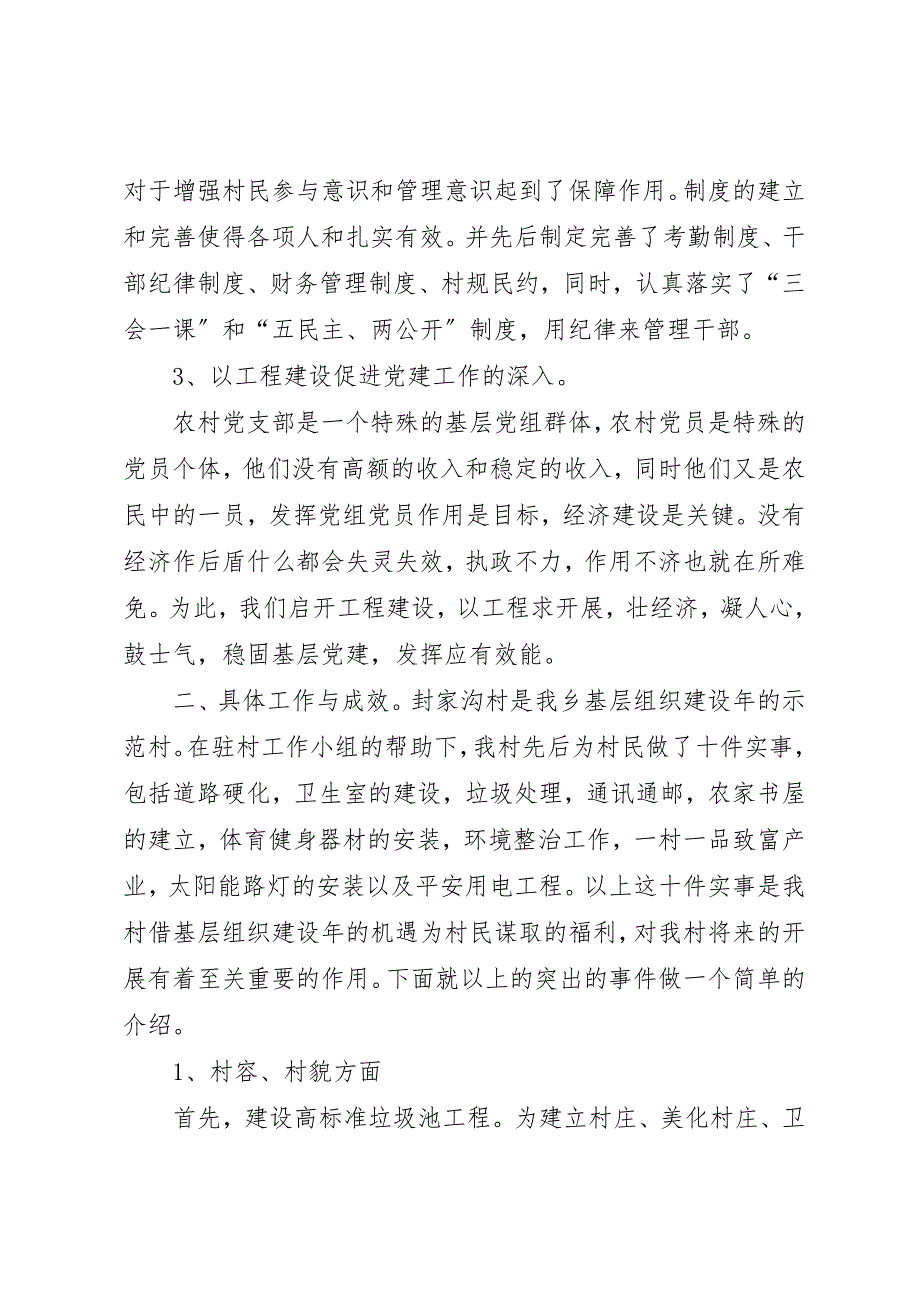 对于增强村民参与意识和管理意识起到了保障作用。制度的建立
和完善使得各项人和扎实有效。并先后制定完善了考勤制度、干
部纪律制度、财务管理制度、村规民约，同时，认真落实了“三
会一课〞和“五民主、两公开〞制度，用纪律来管理干部。
3、以工程建设促进党建工作的深入。
农村党支部是一个特殊的基层党组群体，农村党员是特殊的
党员个体，他们没有高额的收入和稳定的收入，同时他们又是农
民中的一员，发挥党组党员作用是目标，经济建设是关键。没有
经济作后盾什么都会失灵失效，执政不力，作用不济也就在所难
免。为此，我们启开工程建设，以工程求开展，壮经济，凝人心，
鼓士气，稳固基层党建，发挥应有效能。
二、具体工作与成效。封家沟村是我乡基层组织建设年的示
范村。在驻村工作小组的帮助下，我村先后为村民做了十件实事，
包括道路硬化，卫生室的建设，垃圾处理，通讯通邮，农家书屋
的建立，体育健身器材的安装，环境整治工作，一村一品致富产
业，太阳能路灯的安装以及平安用电工程。以上这十件实事是我
村借基层组织建设年的机遇为村民谋取的福利，对我村将来的开
展有着至关重要的作用。下面就以上的突出的事件做一个简单的
介绍。
1、村容、村貌方面
首先，建设高标准垃圾池工程。为建立村庄、美化村庄、卫